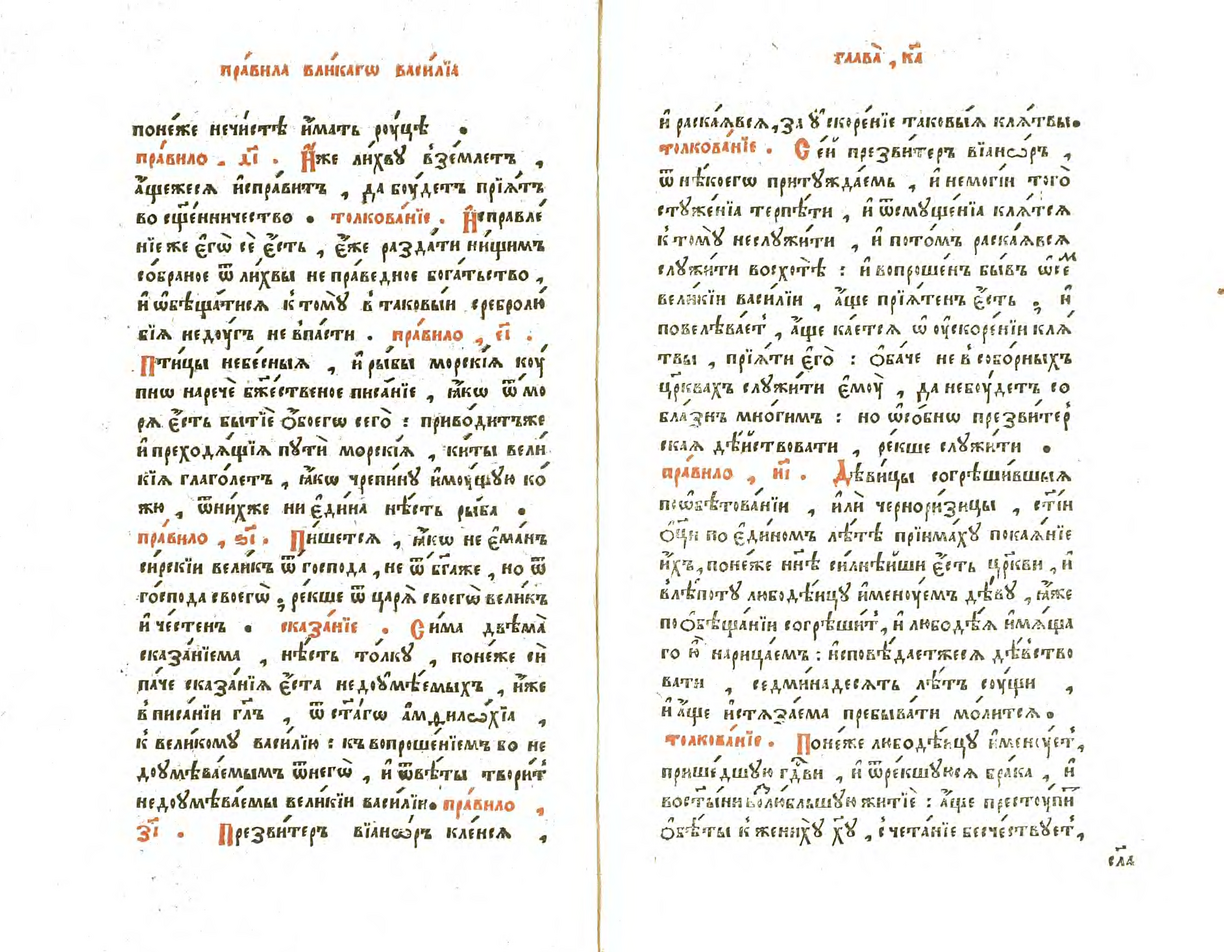 пра́вила вли́кагѡ васи́лїѧ
поне́же нечи́стѣ и҆́мать роу́цѣ .
пра́вило . д҃і . И҆́же ли́хву в̾зе́млетъ ,
а҆́щежесѧ и҆спра́витъ , да боу́детъ прїѧ́тъ
во сщ҃е́нничество . толкова́нїе . И҆справле́
нїе же є҆гѡ̀ сѐ є҆́сть , є҆́же разда́ти ни́щимъ
со́браное ѿ ли́хвы не пра́ведное бога́тьство ,
и҆ ѡ҆бѣща́тисѧ к то́мꙋ в таковы́и сребролю́
бїѧ недоу́гъ не впа́сти . пра́вило , є҃і .
Пти́цы небе́сныѧ , и҆ ры́бы морскі́ѧ коу́
пнѡ наречѐ бж҃е́ственое писа́нїе , ꙗ҆́кѡ ѿ мо́
рѧ є҆́сть бытїѐ ѻ҆боегѡ сего̀ : приво́дитъже
и҆ преходѧ́щїѧ путѝ морскі́ѧ , ки́ты вели́
кїѧ глаго́летъ , ꙗ҆́кѡ чрепи́ну и҆мꙋ́щую ко́
жю , ѿни́хже ни є҆ди́на нѣ́сть ры́ба .
пра́вило , ѕ҃і . Пи́шетсѧ , ꙗ҆́кѡ не є҆ма́нъ
си́рскїи вели́къ ѿ го́спода , не ѿ бг҃а́же , но ѿ
го́спода своегѡ̀ , ре́кше ѿ царѧ̀ своегѡ̀ вели́къ
и҆ че́стенъ . сказа́нїе . Си́ма двѣма̀
сказа́нїема , нѣ́сть то́лку , поне́же сѝ
па́че сказа́нїѧ є҆́ста недоумѣ́емыхъ , и҆́же
в писа́нїи гл҃ъ , ѿ ст҃а́гѡ а҆мфило́хїа ,
к вели́кому васи́лїю : къ вопроше́нїемъ бо не
доумѣ́ваемымъ ѿнегѡ̀ , и҆ ѿвѣ́ты твори́т
недоумѣ́ваемы вели́кїи васи́лїи . пра́вило ,
з҃і . Презви́теръ вїа́нѡръ клене́сѧ ,
глава̀ , к҃а
и҆ раска́ѧвсѧ , за ᲂу҆скоре́нїе таковы́ѧ клѧ́твы .
толкова́нїе . Се́й презви́теръ вїа́нѡръ ,
ѿ нѣ́коегѡ притужда́емь , и҆ немоги́и того̀
стуже́нїа терпѣ́ти , и҆ ѿсмуще́нїа клѧ́тсѧ
к то́мꙋ неслужи́ти , и҆ пото́мъ раска́ѧвсѧ
служи́ти восхотѣ̀ : и҆ вопроше́нъ бы́въ ѡ҆ се́м
вели́кїи васи́лїи , а҆́ще прїѧ́тенъ є҆́сть , и҆
повелѣва́ет , а҆́ще ка́етсѧ ѡ҆ ᲂу҆скоре́нїи клѧ́
твы , прїѧ́ти є҆го̀ : ѻ҆ба́че не в собо́рныхъ
цр҃квахъ служи́ти є҆моу̀ , да небоу́детъ со
бла́знъ мно́гимъ : но ѡ҆со́бнѡ презви́тер
скаѧ дѣ́йствовати , ре́кше служи́ти .
пра́вило , и҃і . Дѣви́цы согрѣши́вшыѧ
поѡ҆бѣтова́нїи , и҆лѝ черноризи́цы , ст҃і́и
ѻ҆ц҃ы по є҆ди́номъ лѣ́тѣ прїима́ху покаѧ́нїе
и҆́хъ , поне́же нн҃ѣ си́лнѣйши є҆́сть цр҃кви , и҆
в лѣ́потꙋ любодѣ́ицꙋ и҆менꙋ́емъ дѣ́вꙋ , ꙗ҆́же
по ѻ҆бѣща́нїи согрѣши́т , и҆ любодѣ́ѧ и҆мѧ́ща
го ю҆̀ нарица́емъ : и҆сповѣ́даетжесѧ дѣ́вство
вати , седмина́десѧть лѣ́тъ соу́щи ,
и҆ а҆́ще и҆стѧза́ема пребыва́ти мо́литсѧ .
толкова́нїе . Поне́же любодѣ́ицꙋ и҆менꙋ́ет ,
прише́дшую гд҃ви , и҆ ѿре́кшуюсѧ бра́ка , и҆
во ст҃ы́ни возлюби́вшую житїѐ : а҆́ще престоупѝ
ѻ҆бѣ́ты к женихꙋ̀ хꙋ҃ , сочета́нїе бесче́ствꙋет ,
сла